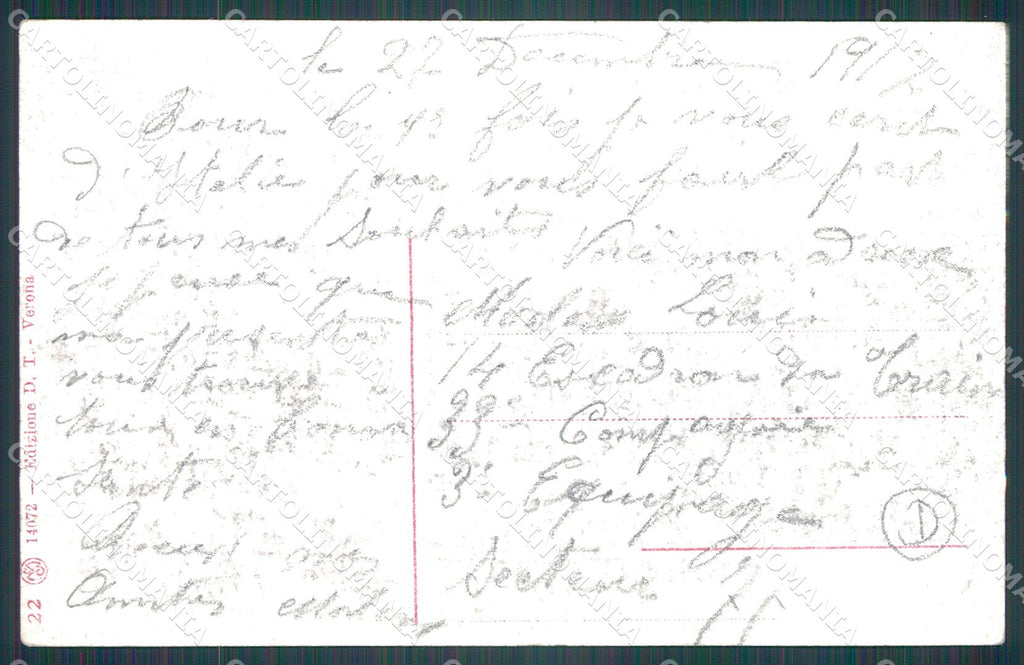 le 22 Decembre 1917
Pour la 4e fois je vous ecrit
d'Italie pour vous faire part
de tous mes Souhaits
Je pense que
ma présente
vous trouve
tous en bonne
Santé
Recevez mes
Amitiés
Voici mon adresse
Louis
14 Escadron du Train
39e Compagnie
3e Equipage
Secteur
D
22 14072 — Edizione D. T. - Verona
CARTOLINOMANIA